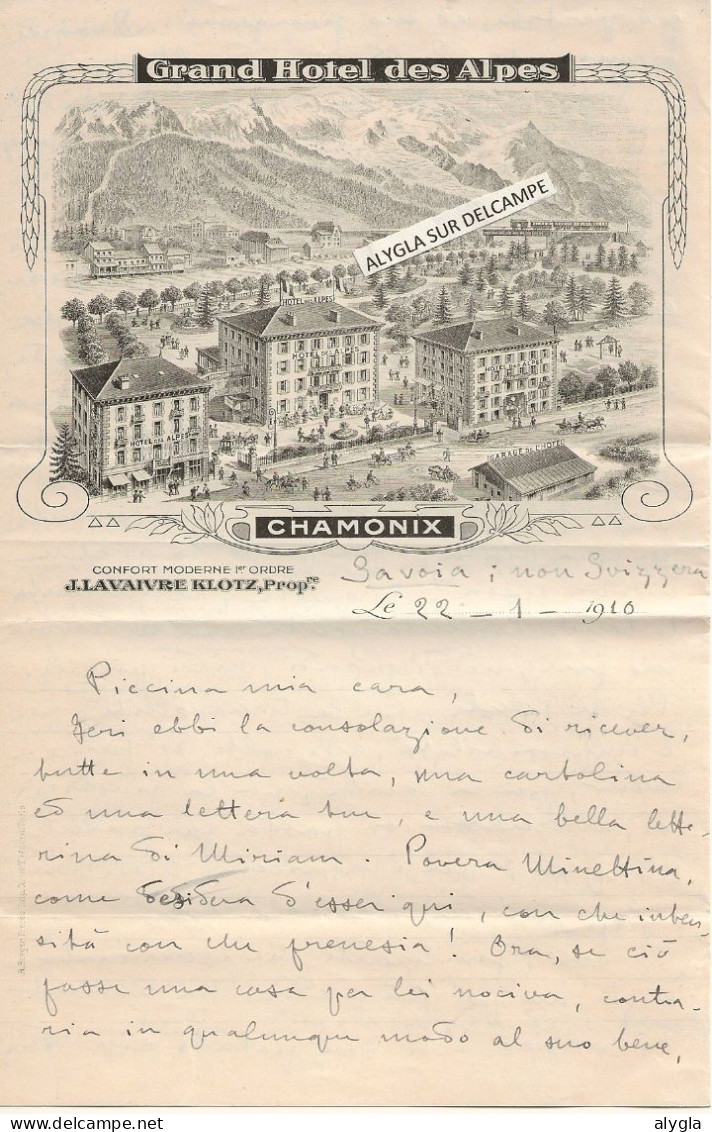 Grand Hotel des Alpes
ALYGLA SUR DELCAMPE
HOTEL DES ALPES
HOTEL DES ALPES
GARAGE DE L'HOTEL
CHAMONIX
CONFORT MODERNE 1er ORDRE
J. LAVAIVRE KLOTZ, Propre.
Savoia ; non Svizzera
Le 22 – 1 – 1910
Piccina mia cara,
Jeri ebbi la consolazione di ricever,
tutte in una volta, una cartolina
ed una lettera tua, e una bella lette-
rina di Miriam. Povera Minettina,
come desidera d'esser qui, con che inten-
sità con che frenesia! Ora, se ciò
fosse una cosa per lei nociva, contra-
ria in qualunque modo al suo bene,
delcampe.net
alygla